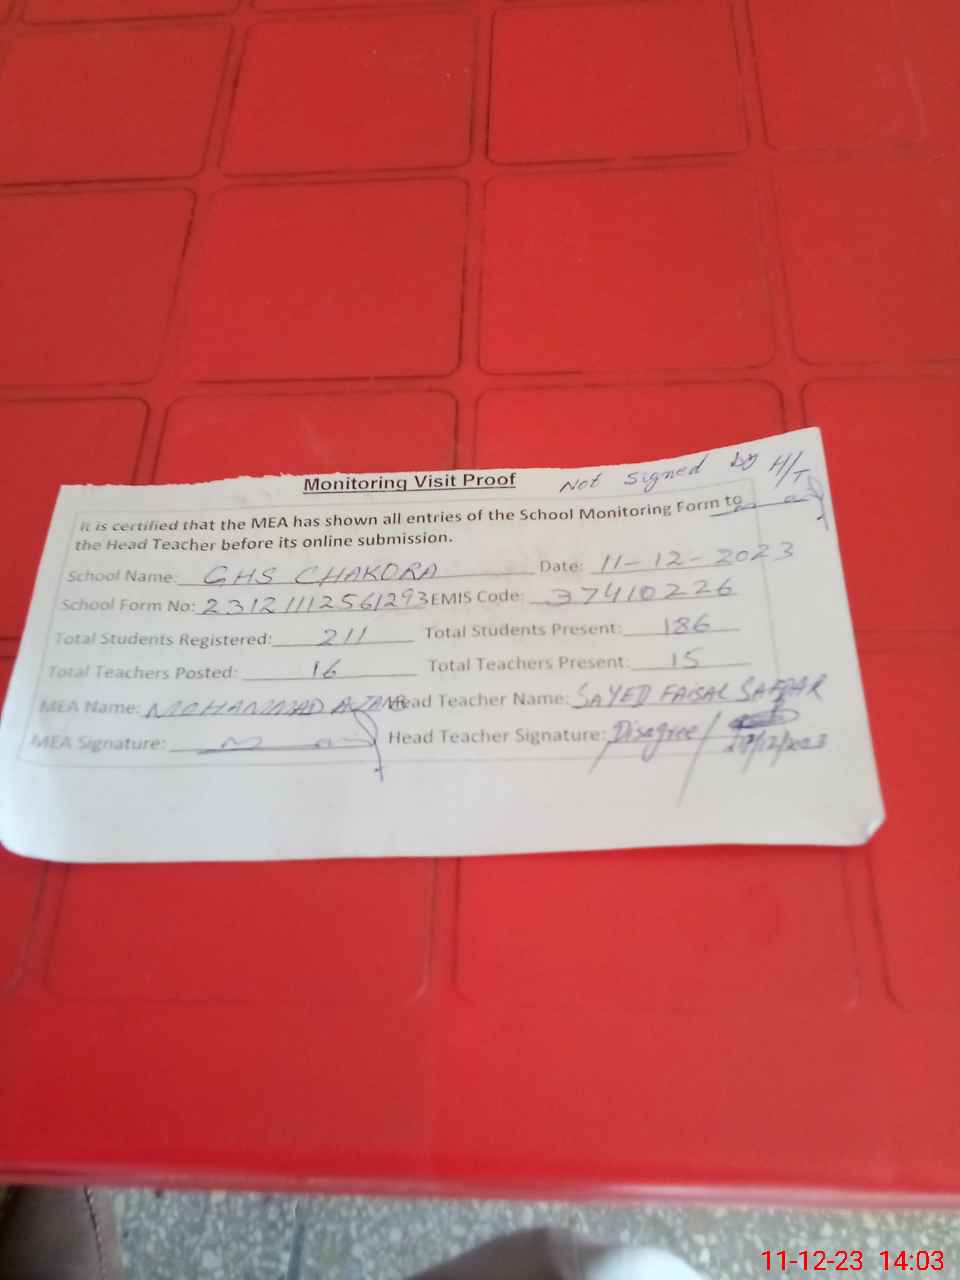 Monitoring Visit Proof
Not signed by H/T
It is certified that the MEA has shown all entries of the School Monitoring Form to
the Head Teacher before its online submission.
School Name: GHS CHAKORA Date: 11-12-2023
School Form No: 23121112561293 EMIS Code: 37410226
Total Students Registered: 211 Total Students Present: 186
Total Teachers Posted: 16 Total Teachers Present: 15
MEA Name: MOHAMMAD Head Teacher Name: SAYED FAISAL SAFDAR
MEA Signature: Head Teacher Signature: Disagree/
11-12-23 14:03